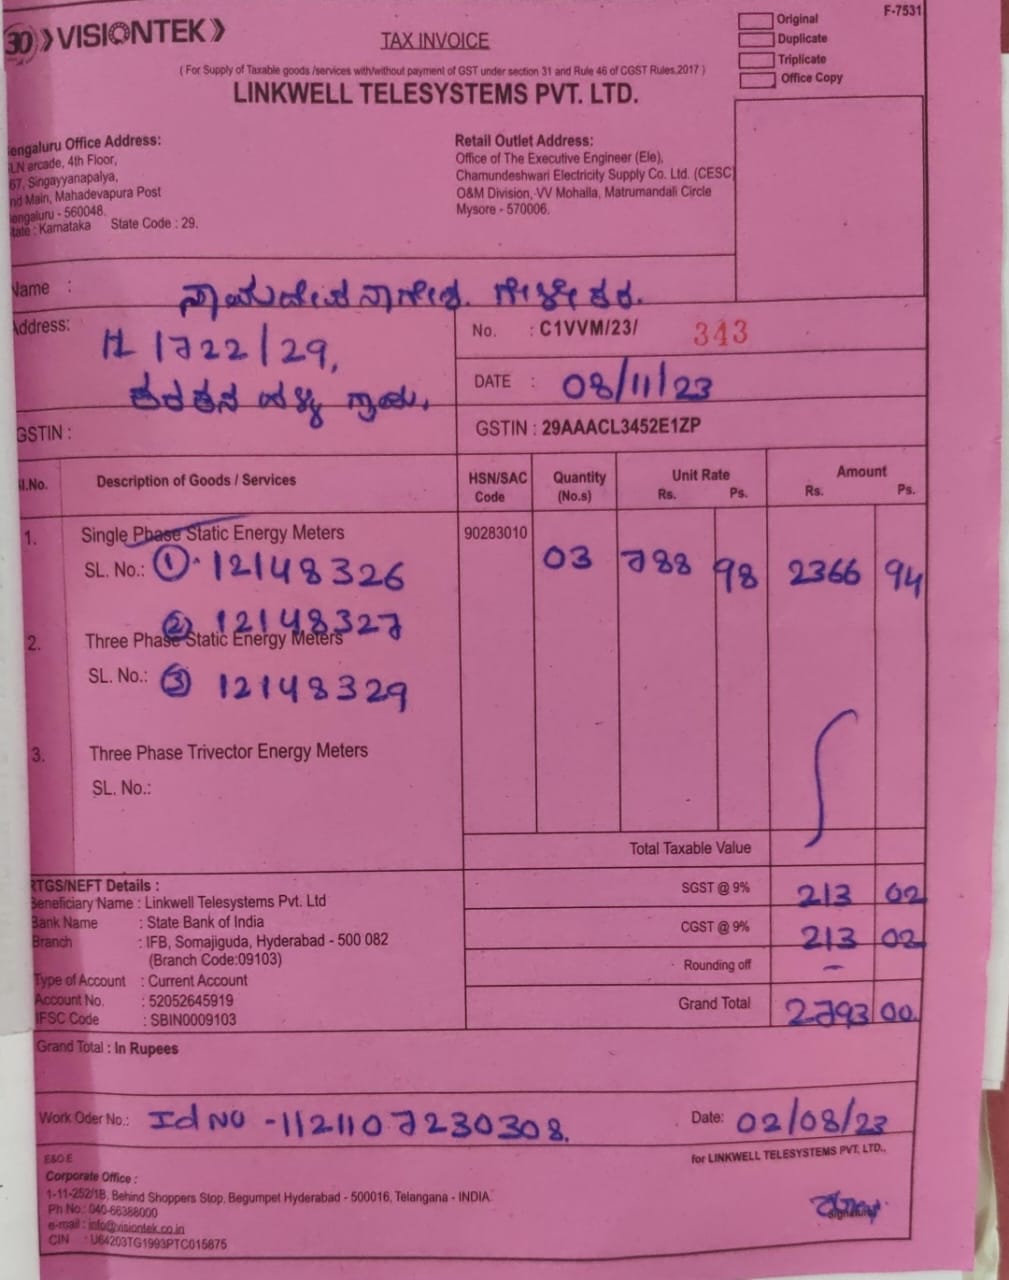 30 VISIONTEK
TAX INVOICE
F-7531
Original
Duplicate
Triplicate
Office Copy
( For Supply of Taxable goods /services with/without payment of GST under section 31 and Rule 46 of CGST Rules,2017 )
LINKWELL TELESYSTEMS PVT. LTD.
engaluru Office Address:
LN arcade, 4th Floor,
67, Singayyanapalya,
nd Main, Mahadevapura Post
engaluru - 560048.
tate : Karnataka State Code : 29.
Retail Outlet Address:
Office of The Executive Engineer (Ele),
Chamundeshwari Electricity Supply Co. Ltd. (CESC)
O&M Division, VV Mohalla, Matrumandali Circle
Mysore - 570006.
Name :
Address:
# 1722/29,
ಗ್ರಾಮ.
No. : C1VVM/23/ 343
DATE : 08/11/23
GSTIN :
GSTIN : 29AAACL3452E1ZP
Sl.No. Description of Goods / Services HSN/SAC Code Quantity (No.s) Unit Rate Rs. Ps. Amount Rs. Ps.
1. Single Phase Static Energy Meters 90283010 03 788 98 2366 94
SL. No.: ① 12148326
② 12148327
2. Three Phase Static Energy Meters
SL. No.: ③ 12148329
3. Three Phase Trivector Energy Meters
SL. No.:
Total Taxable Value
SGST @ 9% 213 02
CGST @ 9% 213 02
Rounding off -
Grand Total 2793 00.
RTGS/NEFT Details :
Beneficiary Name : Linkwell Telesystems Pvt. Ltd
Bank Name : State Bank of India
Branch : IFB, Somajiguda, Hyderabad - 500 082
(Branch Code:09103)
Type of Account : Current Account
Account No. : 52052645919
IFSC Code : SBIN0009103
Grand Total : In Rupees
Work Oder No.: Id NO - 1121107230308. Date: 02/08/23
E&O.E
for LINKWELL TELESYSTEMS PVT. LTD.,
Corporate Office :
1-11-252/1B, Behind Shoppers Stop, Begumpet Hyderabad - 500016, Telangana - INDIA
Ph No.: 040-66388000
e-mail : info@visiontek.co.in
CIN : U64203TG1993PTC015875
Signatory